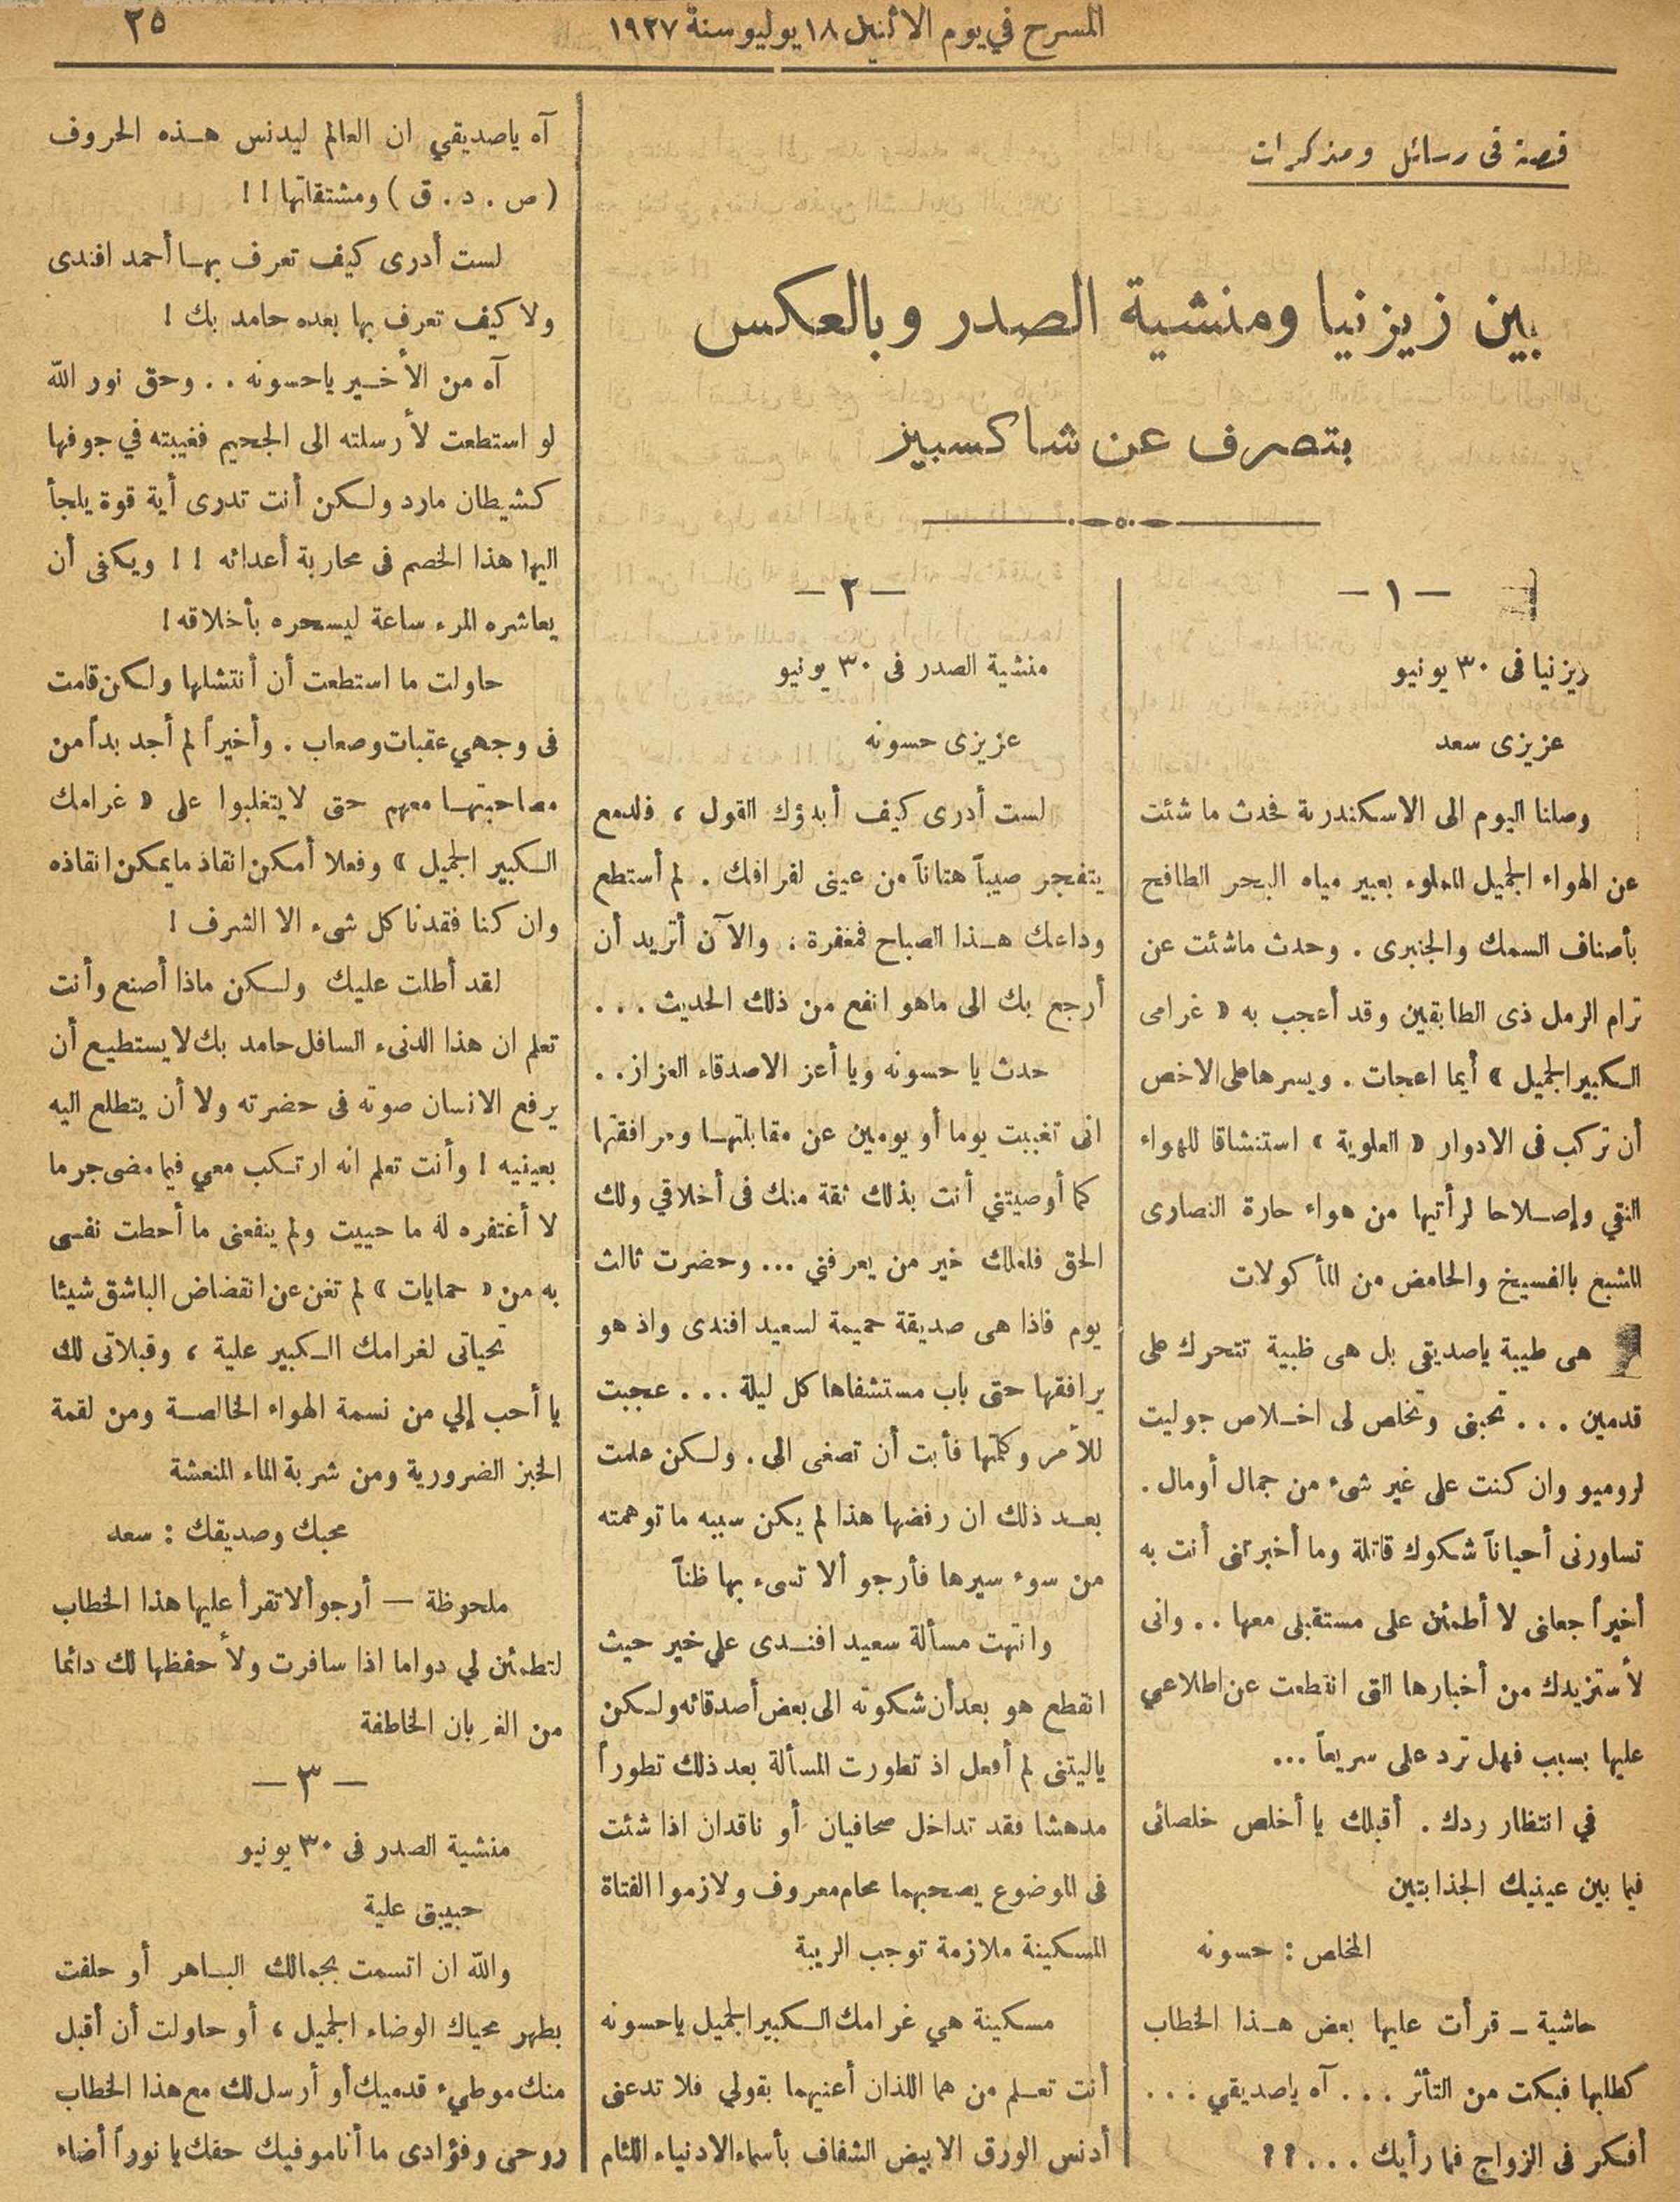 المسرح في يوم الاثنين ١٨ يوليو سنة ١٩٢٧
٢٥
قصة فى رسائل ومذكرات
بين زيزنيا ومنشية الصدر وبالعكس
بتصرف عن شاكسبيز
— ١ —
زيزنيا فى ٣٠ يونيو
عزيزى سعد
وصلنا اليوم الى الاسكندرية فحدث ما شئت
عن الهواء الجميل المملوء بعبير مياه البحر الطافح
بأصناف السمك والجنبرى . وحدث ماشئت عن
ترام الرمل ذى الطابقين وقد أعجب به « غرامى
الكبير الجميل » أيما اعجات . ويسرها على الاخص
أن تركب فى الادوار « العلوية » استنشاقا للهواء
النقي وإصلاحا لرأتيها من هواء حارة النصارى
المشبع بالفسيخ والحامض من المأكولات
هى طيبة ياصديقى بل هى ظبية تتحرك على
قدمين . . . تحبنى وتخلص لى اخلاص جوليت
لروميو وان كنت على غير شىء من جمال أومال .
تساورنى أحياناً شكوك قاتلة وما أخبرتنى أنت به
أخيراً جعلنى لا أطمئن على مستقبلى معها . . وانى
لأستزيدك من أخبارها التى انقطعت عن اطلاعي
عليها بسبب فهل ترد على سريعاً ...
في انتظار ردك . أقبلك يا أخلص خلصائى
فيما بين عينيك الجذابتين
المخلص : حسونه
حاشية ـ قرأت عليها بعض هذا الخطاب
كطلبها فبكت من التأثر . . . آه ياصديقي . . .
أفكر فى الزواج فما رأيك . . . ؟؟
— ٢ —
منشية الصدر فى ٣٠ يونيو
عزيزى حسونه
لست أدرى كيف أبدؤك القول ، فلدمع
يتفجر صيباً هتاناً من عينى لفرافك . لم أستطع
وداعك هذا الصباح فمغفرة . والآن أتريد أن
أرجع بك الى ماهو انفع من ذلك الحديث . . .
حدث يا حسونه ويا أعز الاصدقاء العزاز . .
انى تغيبت يوما أو يومين عن مقابلتها ومرافقتها
كما أوصيتني أنت بذلك ثقة منك فى أخلاقي ولك
الحق فلعلك خير من يعرفني ... وحضرت ثالث
يوم فاذا هى صديقة حميمة لسعيد افندى واذ هو
يرافقها حتى باب مستشفاها كل ليلة . . . عجبت
للأمر وكلمتها فأبت أن تصغى الى . ولكن علمت
بعد ذلك ان رفضها هذا لم يكن سببه ما توهمته
من سوء سيرها فأرجو ألا تسىء بها ظناً
وانتهت مسألة سعيد افندى علي خير حيث
انقطع هو بعد أن شكوته الى بعض أصدقائه ولكن
ياليتنى لم أفعل اذ تطورت المسألة بعد ذلك تطوراً
مدهشا فقد تداخل صحافيان أو ناقدان اذا شئت
فى الموضوع يصحبهما محام معروف ولازموا الفتاة
المسكينة ملازمة توجب الريبة
مسكينة هي غرامك الكبير الجميل ياحسونه
أنت تعلم من هما اللذان أعنيهما بقولي فلا تدعنى
أدنس الورق الابيض الشفاف بأسماء الادنياء اللئام
آه ياصديقي ان العالم ليدنس هذه الحروف
( ص . د . ق ) ومشتقاتها !!
لست أدرى كيف تعرف بها أحمد افندى
ولا كيف تعرف بها بعده حامد بك !
آه من الأخير ياحسونه . . وحق نور الله
لو استطعت لأرسلته الى الجحيم فغيبته في جوفها
كشيطان مارد ولكن أنت تدرى أية قوة يلجأ
اليها هذا الخصم فى محاربة أعدائه !! ويكفى أن
يعاشره المرء ساعة ليسحره بأخلاقه !
حاولت ما استطعت أن أنتشلها ولكن قامت
فى وجهي عقبات وصعاب . وأخيراً لم أجد بداً من
مصاحبتها معهم حتى لا يتغلبوا على « غرامك
الكبير الجميل » وفعلا أمكن انقاذ مايمكن انقاذه
وان كنا فقدنا كل شىء الا الشرف !
لقد أطلت عليك ولكن ماذا أصنع وأنت
تعلم ان هذا الدنىء السافل حامد بك لا يستطيع أن
يرفع الانسان صوته فى حضرته ولا أن يتطلع اليه
بعينيه ! وأنت تعلم انه ارتكب معي فيما مضى جرما
لا أغتفره له ما حييت ولم ينفعنى ما أحطت نفسى
به من « حمايات » لم تغن عن انقضاض الباشق شيئا
تحياتى لغرامك الكبير علية ، وقبلاتى لك
يا أحب إلي من نسمة الهواء الخالصة ومن لقمة
الخبز الضرورية ومن شربة الماء المنعشة
محبك وصديقك : سعد
ملحوظة — أرجو ألا تقرأ عليها هذا الخطاب
لتطمئن لي دواما اذا سافرت ولأحفظها لك دائما
من الغربان الخاطفة
— ٣ —
منشية الصدر فى ٣٠ يونيو
حبيبتى علية
والله ان اتسمت بجمالك الباهر أو حلفت
بطهر محياك الوضاء الجميل ، أو حاولت أن أقبل
منك موطيء قدميك أو أرسل لك مع هذا الخطاب
روحى وفؤادى ما أنا موفيك حفك يا نوراً أضاء